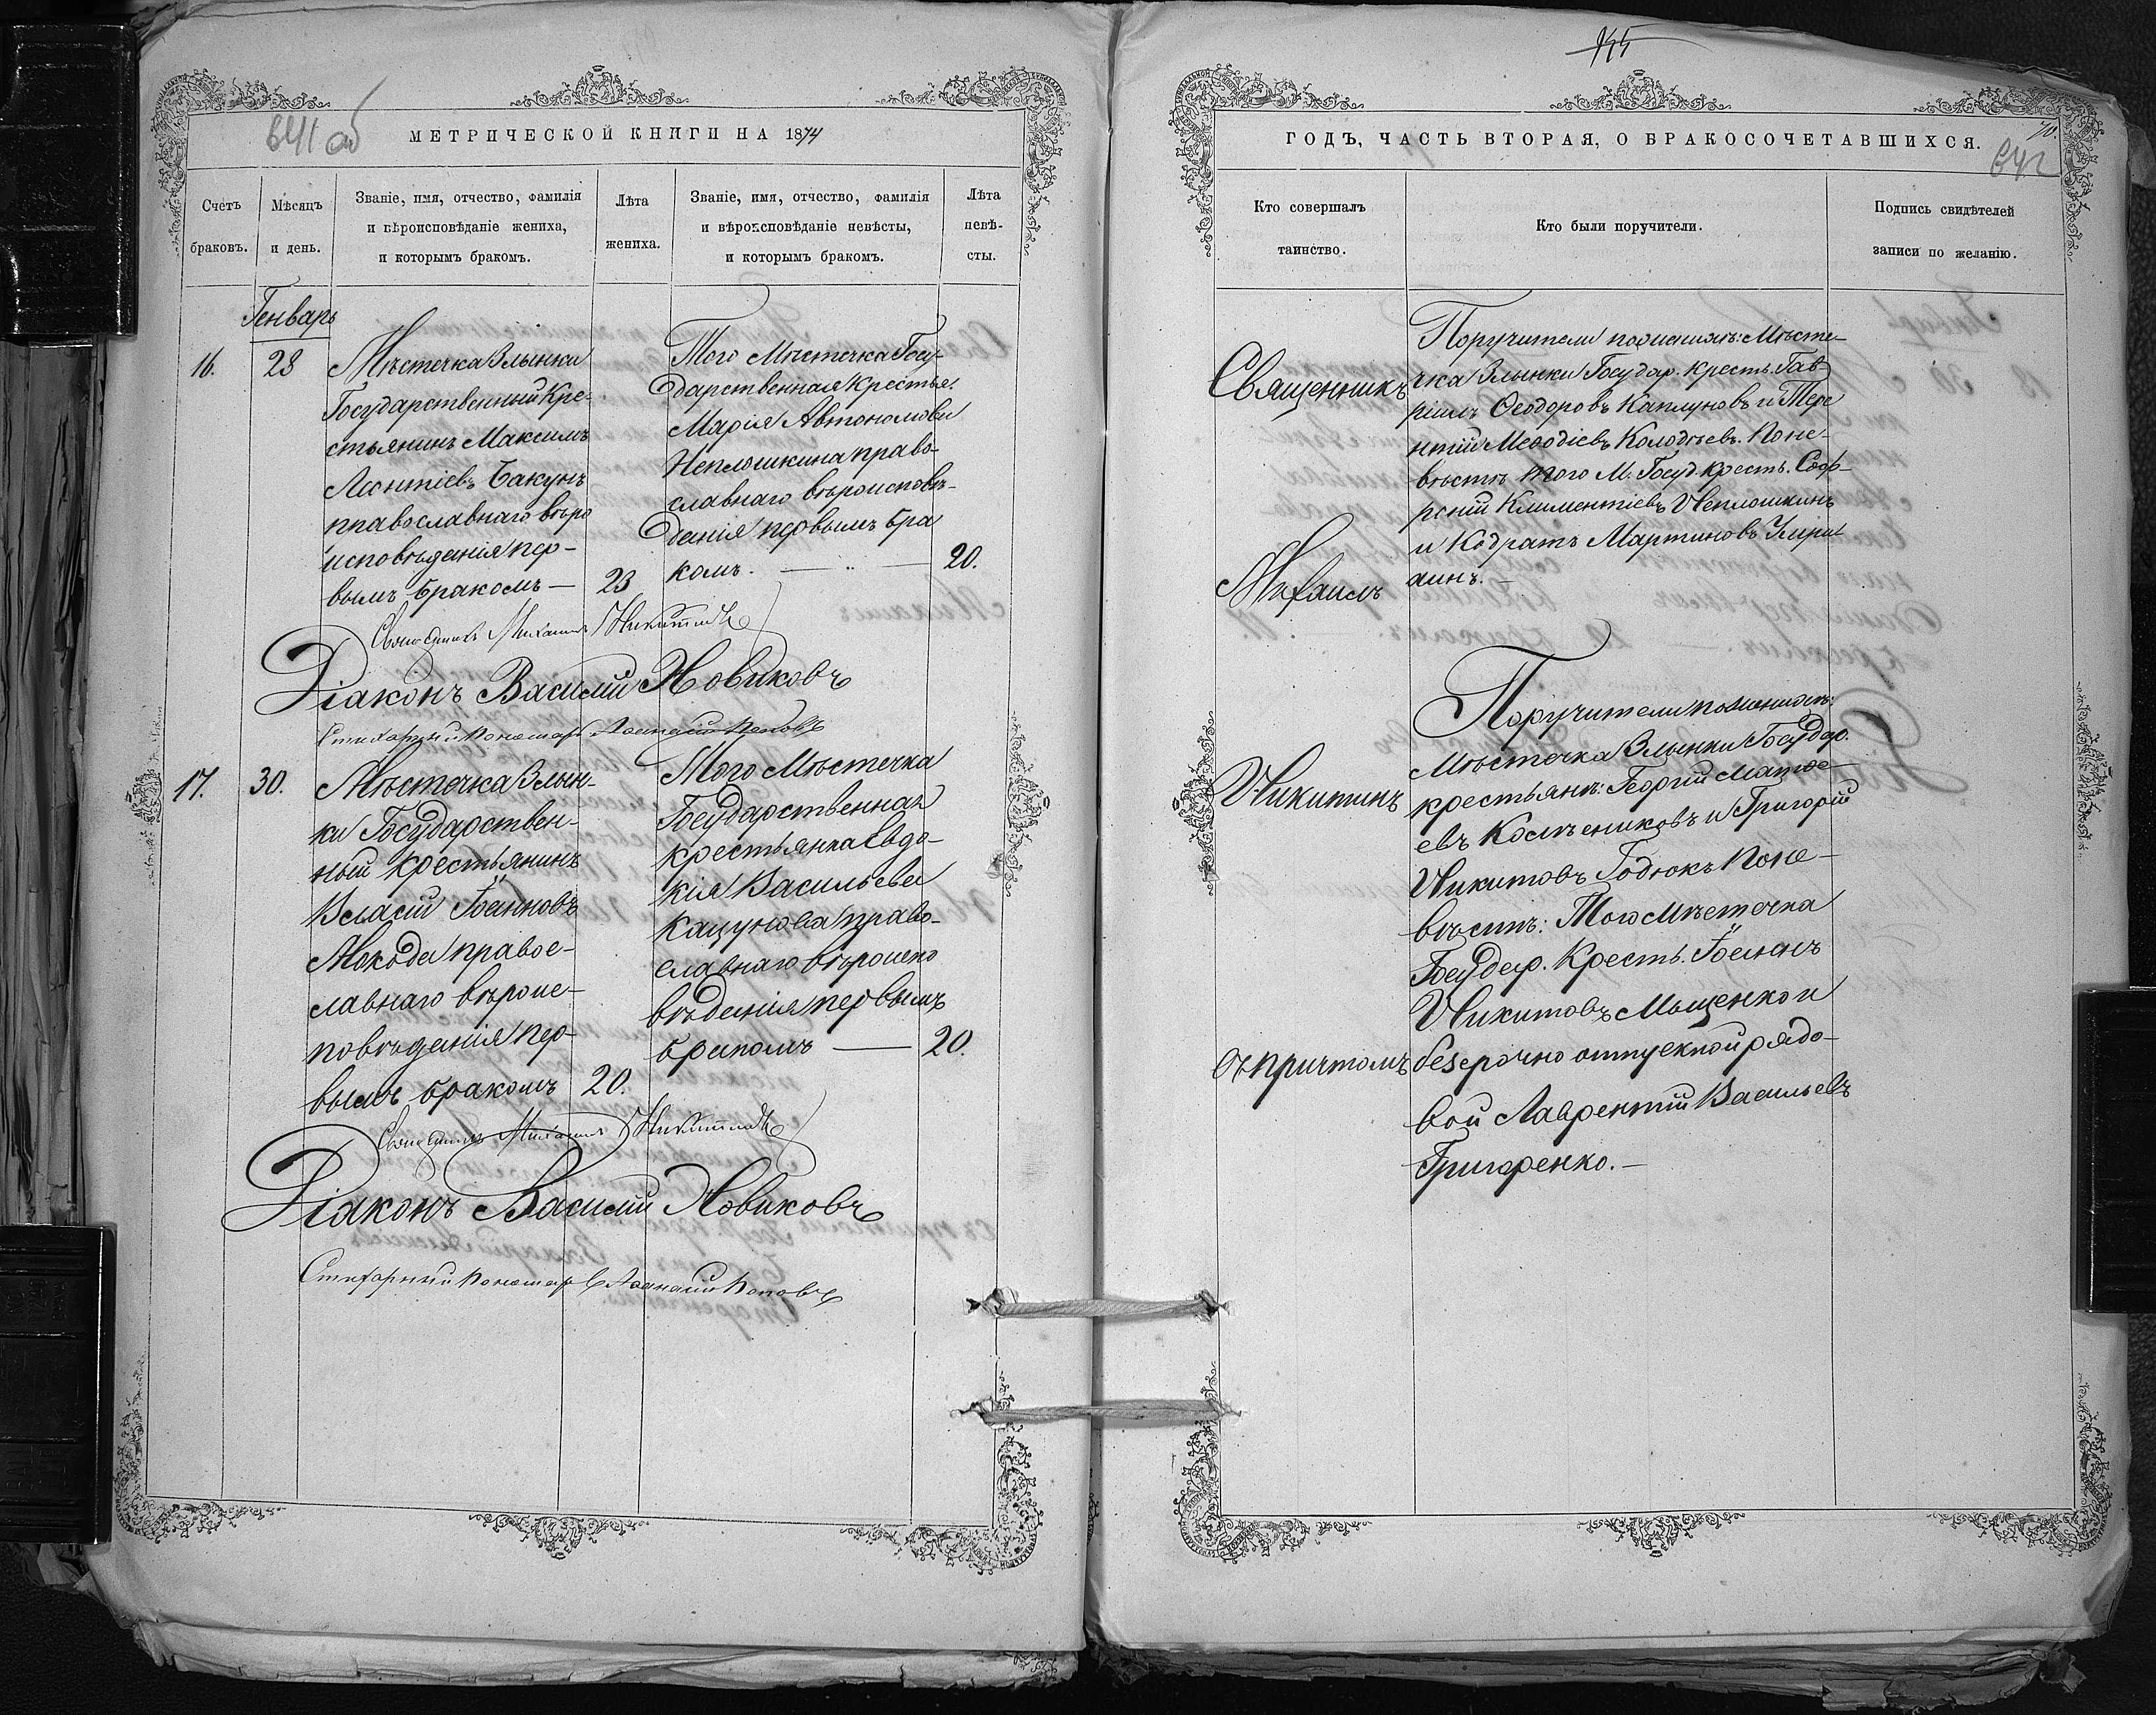 641 об
МЕТРИЧЕСКОЙ КНИГИ НА 1874
Счетъ браковъ.
Мѣсяцъ и день.
Званіе, имя, отчество, фамилія
и вѣроисповѣданіе жениха,
и которымъ бракомъ.
Лѣта жениха.
Званіе, имя, отчество, фамилія
и вѣроисповѣданіе невѣсты,
и которымъ бракомъ.
Лѣта невѣ-
сты.
Генварь
16.
28
Мѣстечка Злынки
Государственный Кре-
стьянинъ Максимъ
Леонтіевъ Бакунъ
православнаго вѣро
исповѣданія пер-
вымъ бракомъ —
23
Того Мѣстечка Госу-
дарственная Крестья.
Марія Автономова
Неплошкина право-
славнаго вѣроисповѣ-
данія первымъ бра
комъ. —
20.
Священникъ Михаилъ Никитинъ
Діаконъ Василій Новиковъ
Стихарный Пономарь Аѳанасій Поповъ
17.
30.
Мѣстечка Злын-
ки Государствен-
ный крестьянинъ
Власій Іоанновъ
Мокода правос-
лавнаго вѣроис-
повѣданія пер-
вымъ бракомъ
20.
Того Мѣстечка
Государственная
крестьянка Евдо-
кія Васильева
Кацунова право-
славнаго вѣроиспо
вѣданія первымъ
бракомъ —
20.
Священникъ Михаилъ Никитинъ
Діаконъ Василій Новиковъ
Стихарный Пономарь Аѳанасій Поповъ
ГОДЪ, ЧАСТЬ ВТОРАЯ, О БРАКОСОЧЕТАВШИХСЯ.
70.
642
Кто совершалъ
таинство.
Кто были поручители.
Подпись свидѣтелей
записи по желанію.
Священникъ
Михаилъ
Никитинъ
съ причтомъ
Поручители по женихѣ: Мѣсте-
чка Злынки Государ. Кресть. Гав-
ріилъ Ѳеодоровъ Каплуновъ и Тере
нтій Меѳодіевъ Колодѣевъ. По не-
вѣстѣ того М. Госуд. Кресть. Соф-
роній Климентіевъ Неплошкинъ
и Кодратъ Мартиновъ Кири
Поручители по женихѣ:
Мѣстечка Злынки Государ.
крестьяне: Георгій Матѳе-
евъ и Григорій
Никитовъ Годюкъ По не-
вѣстѣ: Того Мѣстечка
Государ. Кресть. Іоаннъ
Никитовъ Мащенко и
безсрочно отпускной рядо-
вой Лаврентій Васильевъ
Григоренко. —